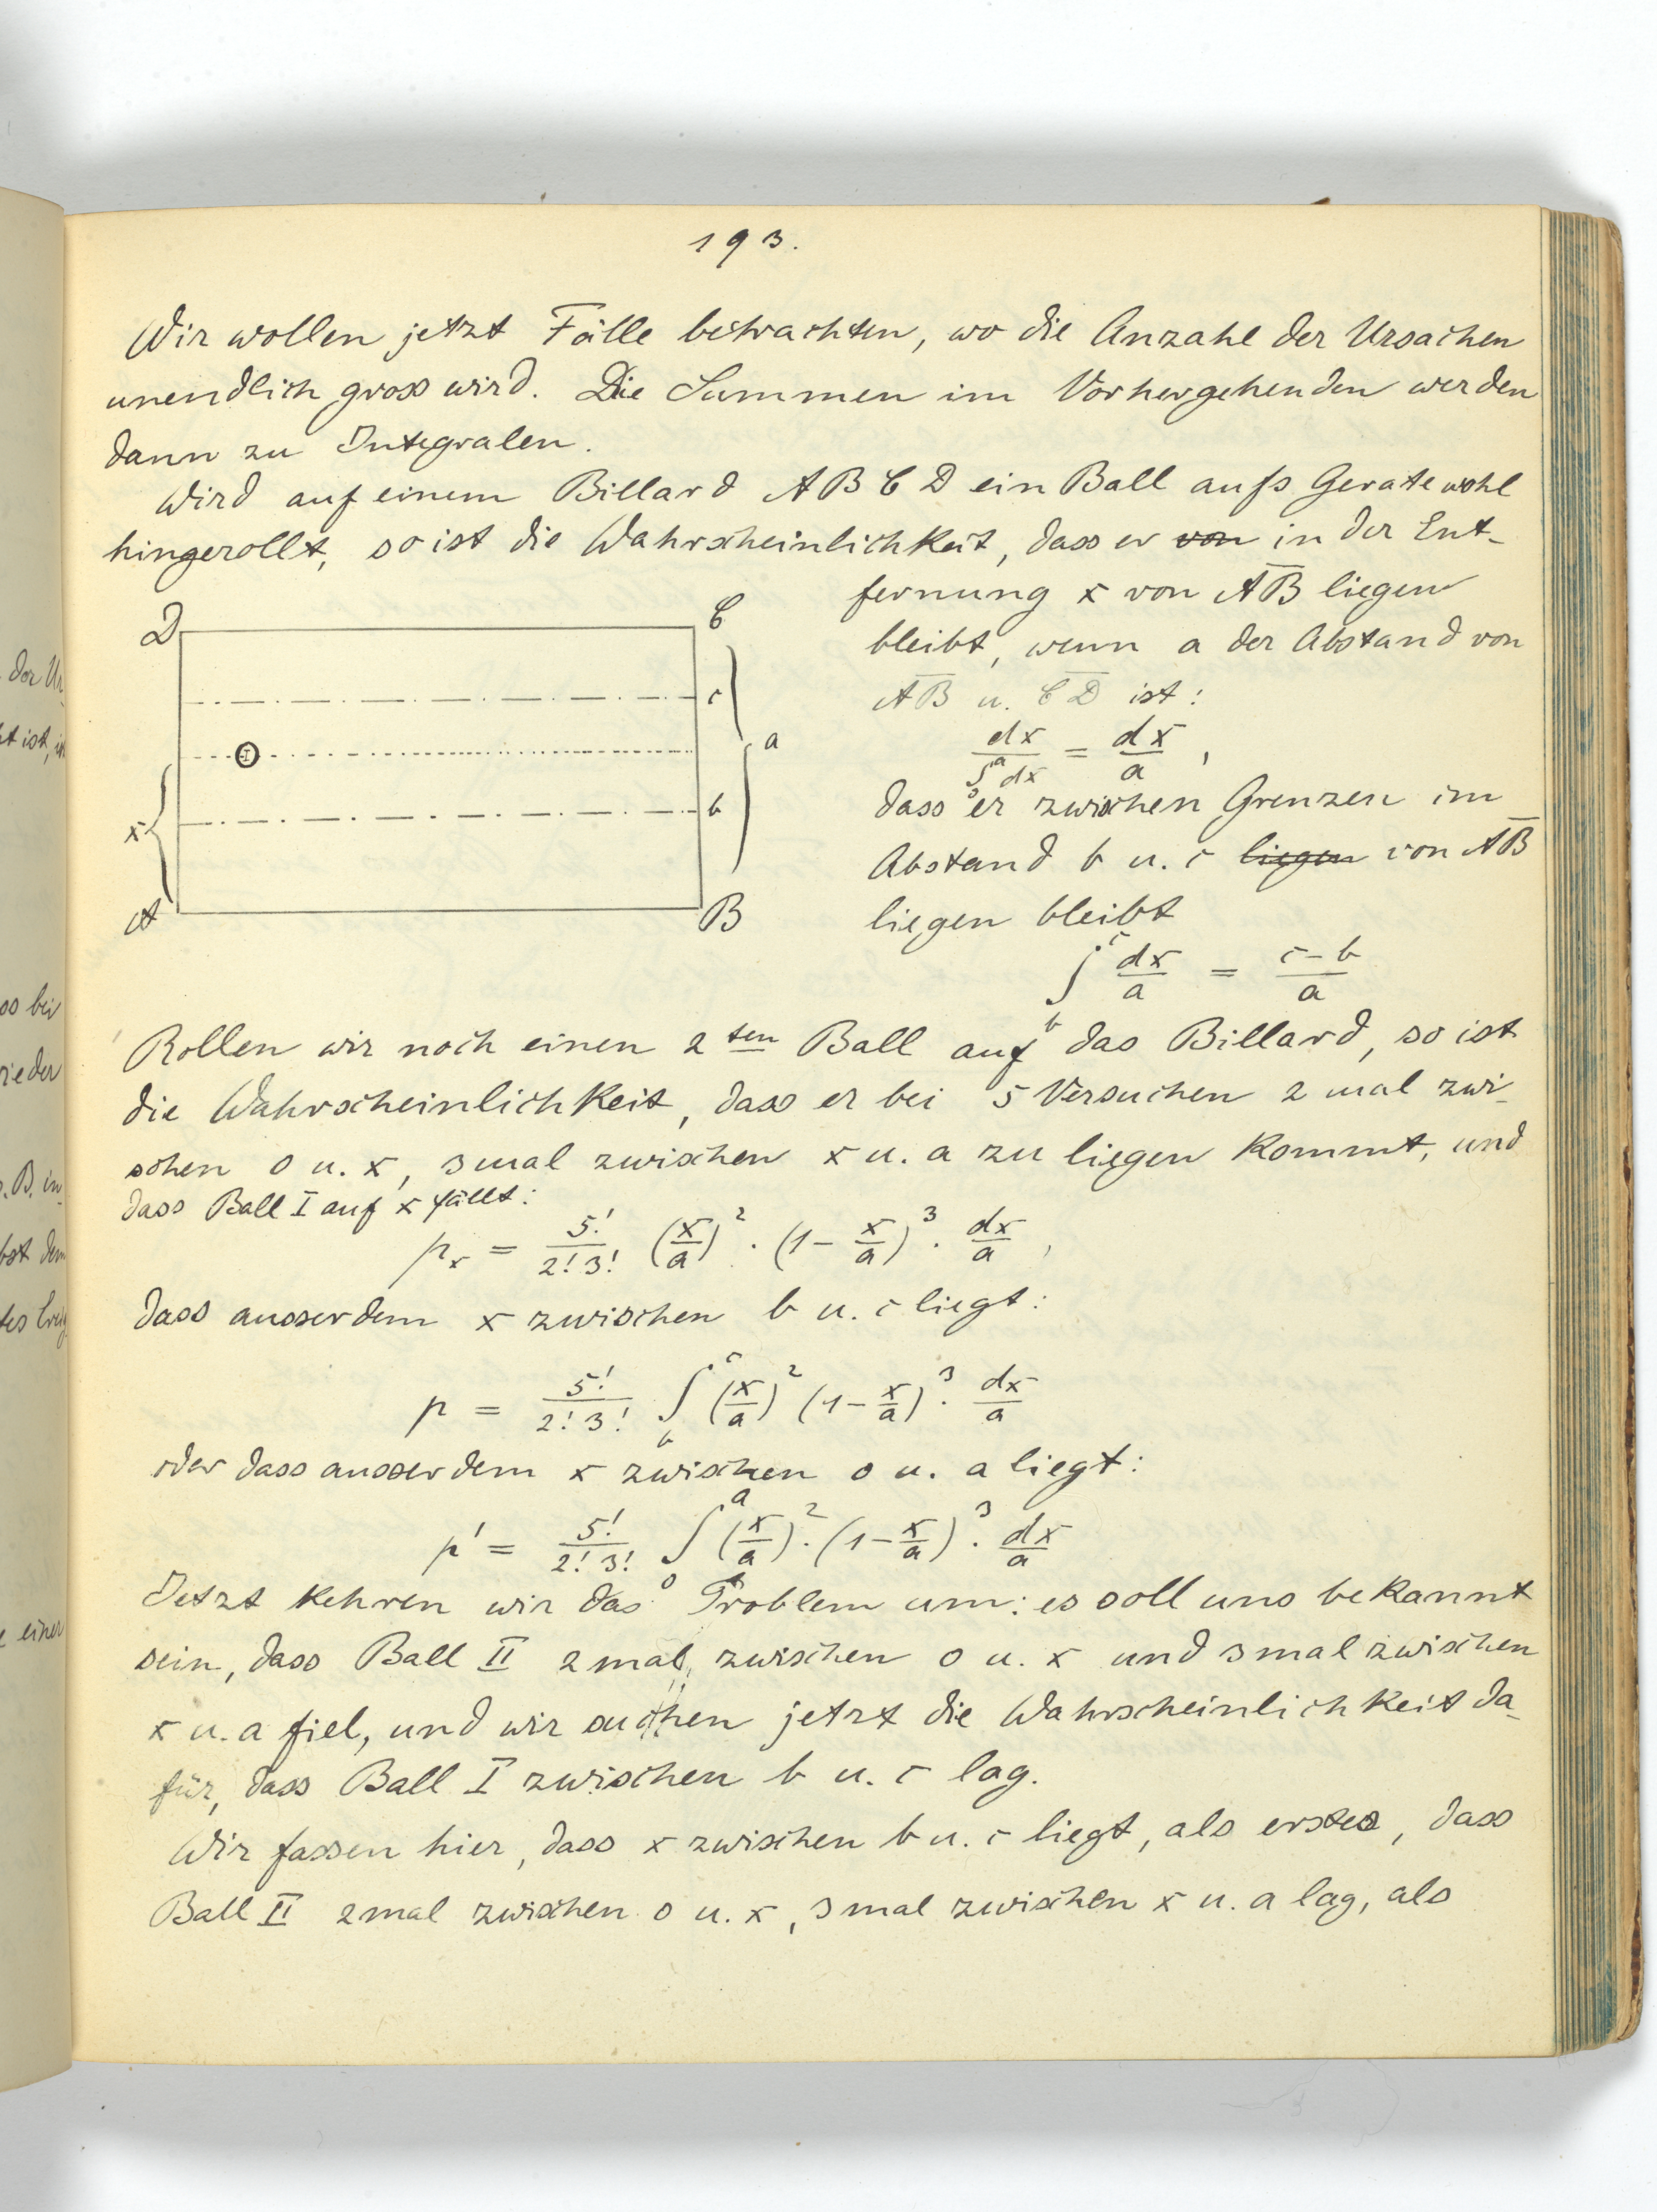 193.
Wir wollen jetzt Fälle betrachten, wo die Anzahl der Ursachen
unendlich gross wird. Die Summen im Vorhergehenden werden
dann zu Integralen.
Wird auf einem Billard A B C D ein Ball aufs Geratewohl
hingerollt, so ist die Wahrscheinlichkeit, dass er von in der Ent-
fernung x von A̅B̅ liegen
bleibt, wenn a der Abstand von
A̅B̅ u. C̅D̅ ist:
dx / ∫₀ᵃ dx = dx/a ,
dass er zwischen Grenzen im
Abstand b u. c liegen von A̅B̅
liegen bleibt
∫_b^c dx/a = (c-b)/a
D
C
c
I
a
b
x
A
B
Rollen wir noch einen 2ten Ball auf das Billard, so ist
die Wahrscheinlichkeit, dass er bei 5 Versuchen 2 mal zwi-
schen 0 u. x, 3mal zwischen x u. a zu liegen kommt, und
dass Ball I auf x fällt:
p_x = 5!/(2! 3!) (x/a)² · (1 - x/a)³ · dx/a ,
dass ausserdem x zwischen b u. c liegt:
p = 5!/(2! 3!) ∫_b^c (x/a)² (1 - x/a)³ · dx/a
oder dass ausserdem x zwischen 0 u. a liegt:
p' = 5!/(2! 3!) ∫₀ᵃ (x/a)² · (1 - x/a)³ · dx/a
Jetzt kehren wir das Problem um: es soll uns bekannt
sein, dass Ball II 2mal, zwischen 0 u. x und 3mal zwischen
x u. a fiel, und wir suchen jetzt die Wahrscheinlichkeit da-
für, dass Ball I zwischen b u. c lag.
Wir fassen hier, dass x zwischen b u. c liegt, als erstes, dass
Ball II 2mal zwischen 0 u. x, 3mal zwischen x u. a lag, als
der Ur-
ist,
bei
wieder
z.B. in
dem
einer